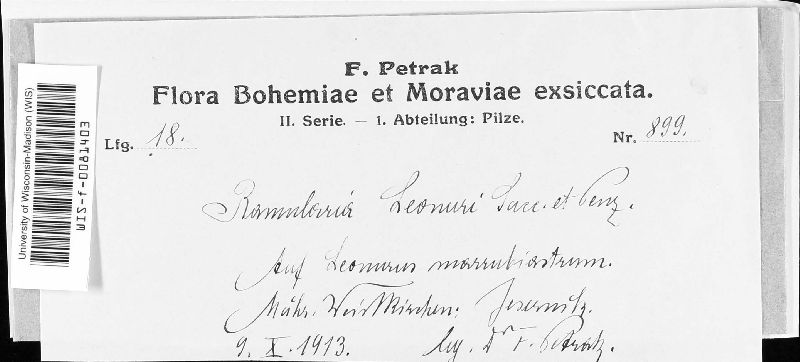 F. Petrak
Flora Bohemiae et Moraviae exsiccata.
II. Serie. — 1. Abteilung: Pilze.
Lfg. 18. Nr. 899.
Ramularia Leonuri Sacc. et Penz.
Auf Leonurus marrubiastrum.
Mähr. Weisskirchen: Jesernitz.
9. X. 1913. leg. Dr F. Petrak.
University of Wisconsin-Madison (WIS)
WIS-f-0081403